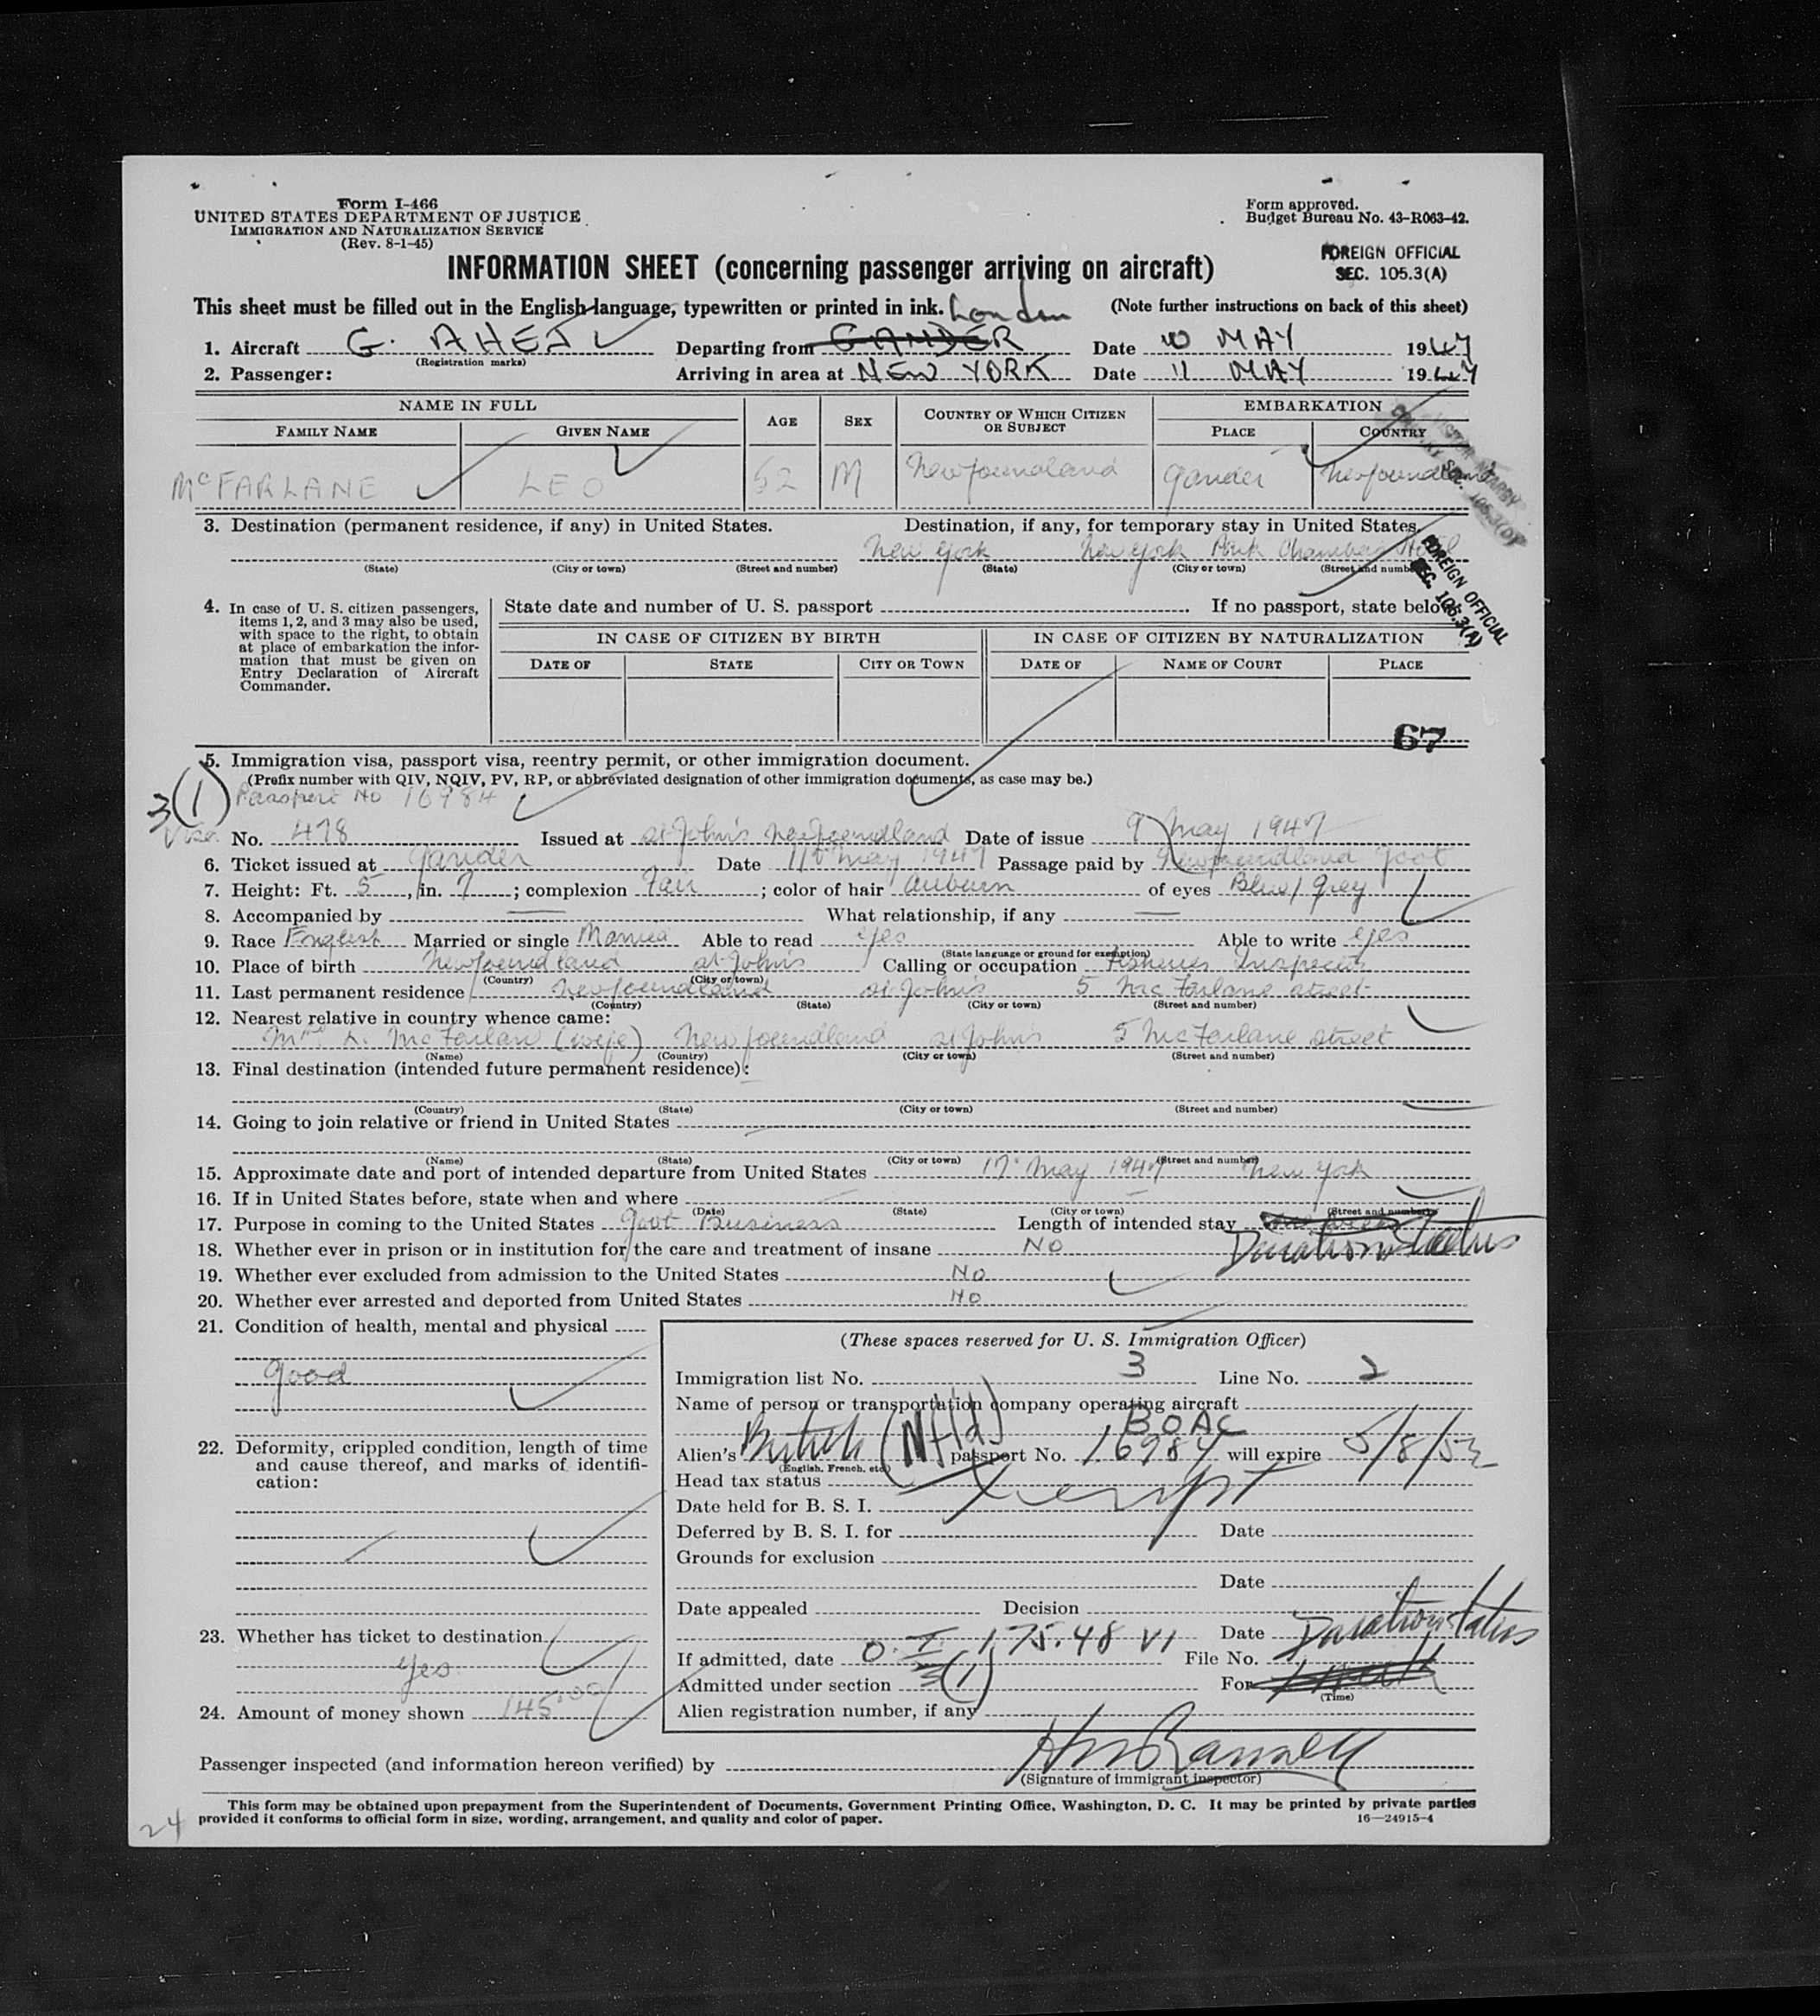 Form I-466
UNITED STATES DEPARTMENT OF JUSTICE
IMMIGRATION AND NATURALIZATION SERVICE
(Rev. 8-1-45)
Form approved.
Budget Bureau No. 43-R063-42.
FOREIGN OFFICIAL
SEC. 105.3(A)
INFORMATION SHEET (concerning passenger arriving on aircraft)
This sheet must be filled out in the English language, typewritten or printed in ink. London (Note further instructions on back of this sheet)
1. Aircraft G. AHEJ Departing from GANDER Date 10 MAY 1947
(Registration marks)
2. Passenger: Arriving in area at NEW YORK Date 11 MAY 1947
NAME IN FULL AGE SEX COUNTRY OF WHICH CITIZEN OR SUBJECT EMBARKATION
FAMILY NAME GIVEN NAME PLACE COUNTRY
McFARLANE LEO 52 M Newfoundland Gander Newfoundland
3. Destination (permanent residence, if any) in United States. Destination, if any, for temporary stay in United States.
New York New York Park Chambers Hotel
(State) (City or town) (Street and number) (State) (City or town) (Street and number)
FOREIGN OFFICIAL
SEC. 105.3(A)
4. In case of U. S. citizen passengers, items 1, 2, and 3 may also be used, with space to the right, to obtain at place of embarkation the information that must be given on Entry Declaration of Aircraft Commander.
State date and number of U. S. passport If no passport, state below
IN CASE OF CITIZEN BY BIRTH IN CASE OF CITIZEN BY NATURALIZATION
DATE OF STATE CITY OR TOWN DATE OF NAME OF COURT PLACE
67
5. Immigration visa, passport visa, reentry permit, or other immigration document.
(Prefix number with QIV, NQIV, PV, RP, or abbreviated designation of other immigration documents, as case may be.)
3(1) Passport No 16984
Visa No. 478 Issued at St John's Newfoundland Date of issue 9 May 1947
6. Ticket issued at Gander Date 11th May 1947 Passage paid by Newfoundland Govt
7. Height: Ft. 5, in. 7; complexion Fair; color of hair Auburn of eyes Blue/grey
8. Accompanied by — What relationship, if any —
9. Race English Married or single Married Able to read yes Able to write yes
(State language or ground for exemption)
10. Place of birth Newfoundland St John's Calling or occupation Fisheries Inspector
(Country) (City or town)
11. Last permanent residence Newfoundland St John's 5 McFarlane street
(Country) (State) (City or town) (Street and number)
12. Nearest relative in country whence came:
Mrs L. McFarlan (wife) Newfoundland St John's 5 McFarlane street
(Name) (Country) (City or town) (Street and number)
13. Final destination (intended future permanent residence):
(Country) (State) (City or town) (Street and number)
14. Going to join relative or friend in United States
(Name) (State) (City or town) (Street and number)
15. Approximate date and port of intended departure from United States 17 May 1947 New York
16. If in United States before, state when and where
(Date) (State) (City or town) (Street and number)
17. Purpose in coming to the United States Govt Business Length of intended stay
Duration Status
18. Whether ever in prison or in institution for the care and treatment of insane NO
19. Whether ever excluded from admission to the United States NO
20. Whether ever arrested and deported from United States NO
21. Condition of health, mental and physical
good
22. Deformity, crippled condition, length of time and cause thereof, and marks of identification:
23. Whether has ticket to destination
yes
24. Amount of money shown 145.00
(These spaces reserved for U. S. Immigration Officer)
Immigration list No. 3 Line No. 2
Name of person or transportation company operating aircraft
BOAC
Alien's British (Nfld) passport No. 16984 will expire 5/8/52
(English, French, etc.)
Head tax status Exempt
Date held for B. S. I.
Deferred by B. S. I. for Date
Grounds for exclusion
Date
Date appealed Decision
O.I. 175.48 VI Date Duration Status
If admitted, date File No.
Admitted under section 3(1) For
(Time)
Alien registration number, if any
Passenger inspected (and information hereon verified) by
(Signature of immigrant inspector)
This form may be obtained upon prepayment from the Superintendent of Documents, Government Printing Office, Washington, D. C. It may be printed by private parties
provided it conforms to official form in size, wording, arrangement, and quality and color of paper. 16—24915-4
24